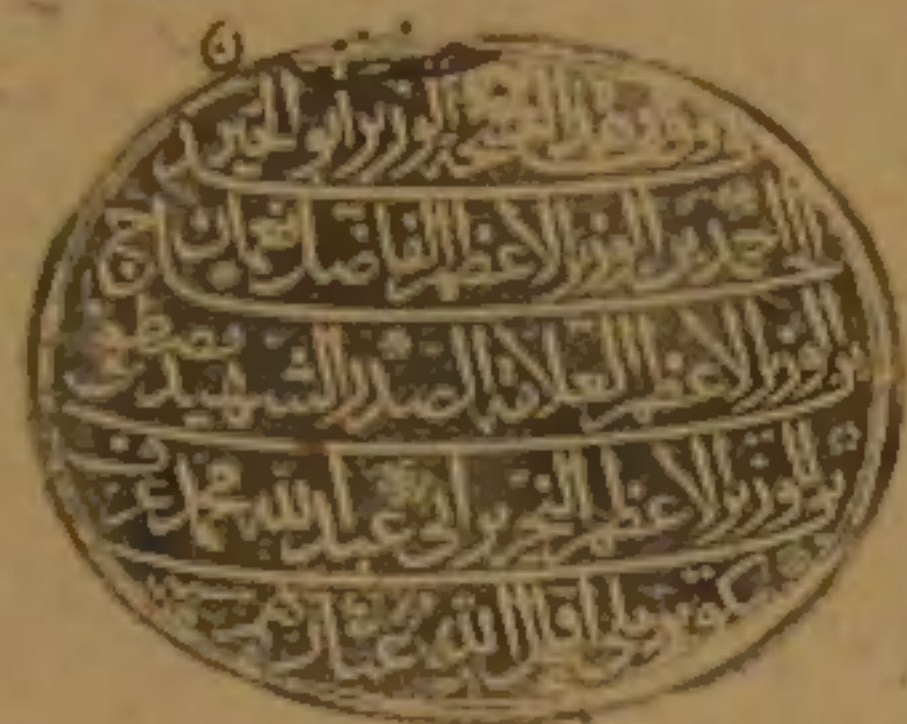 الوزير ابو الخير
الحاج احمد بن الوزير الاعظم الفاضل نعمان
بن الوزير الاعظم العلامة الصدر الشهيد مصطفى
بن الوزير الاعظم النحرير ابى عبد الله محمد عرف
بكوپريلى اقال الله عثارهم